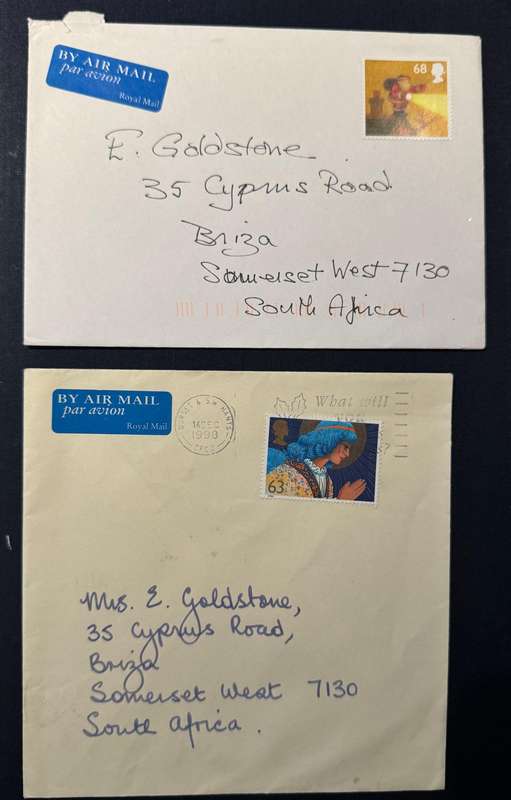 BY AIR MAIL
par avion
Royal Mail
68
E. Goldstone
35 Cyprus Road
Briza
Somerset West 7130
South Africa
BY AIR MAIL
par avion
Royal Mail
14 DEC
1998
What will
63
Mrs. E. Goldstone,
35 Cyprus Road,
Briza
Somerset West 7130
South Africa.